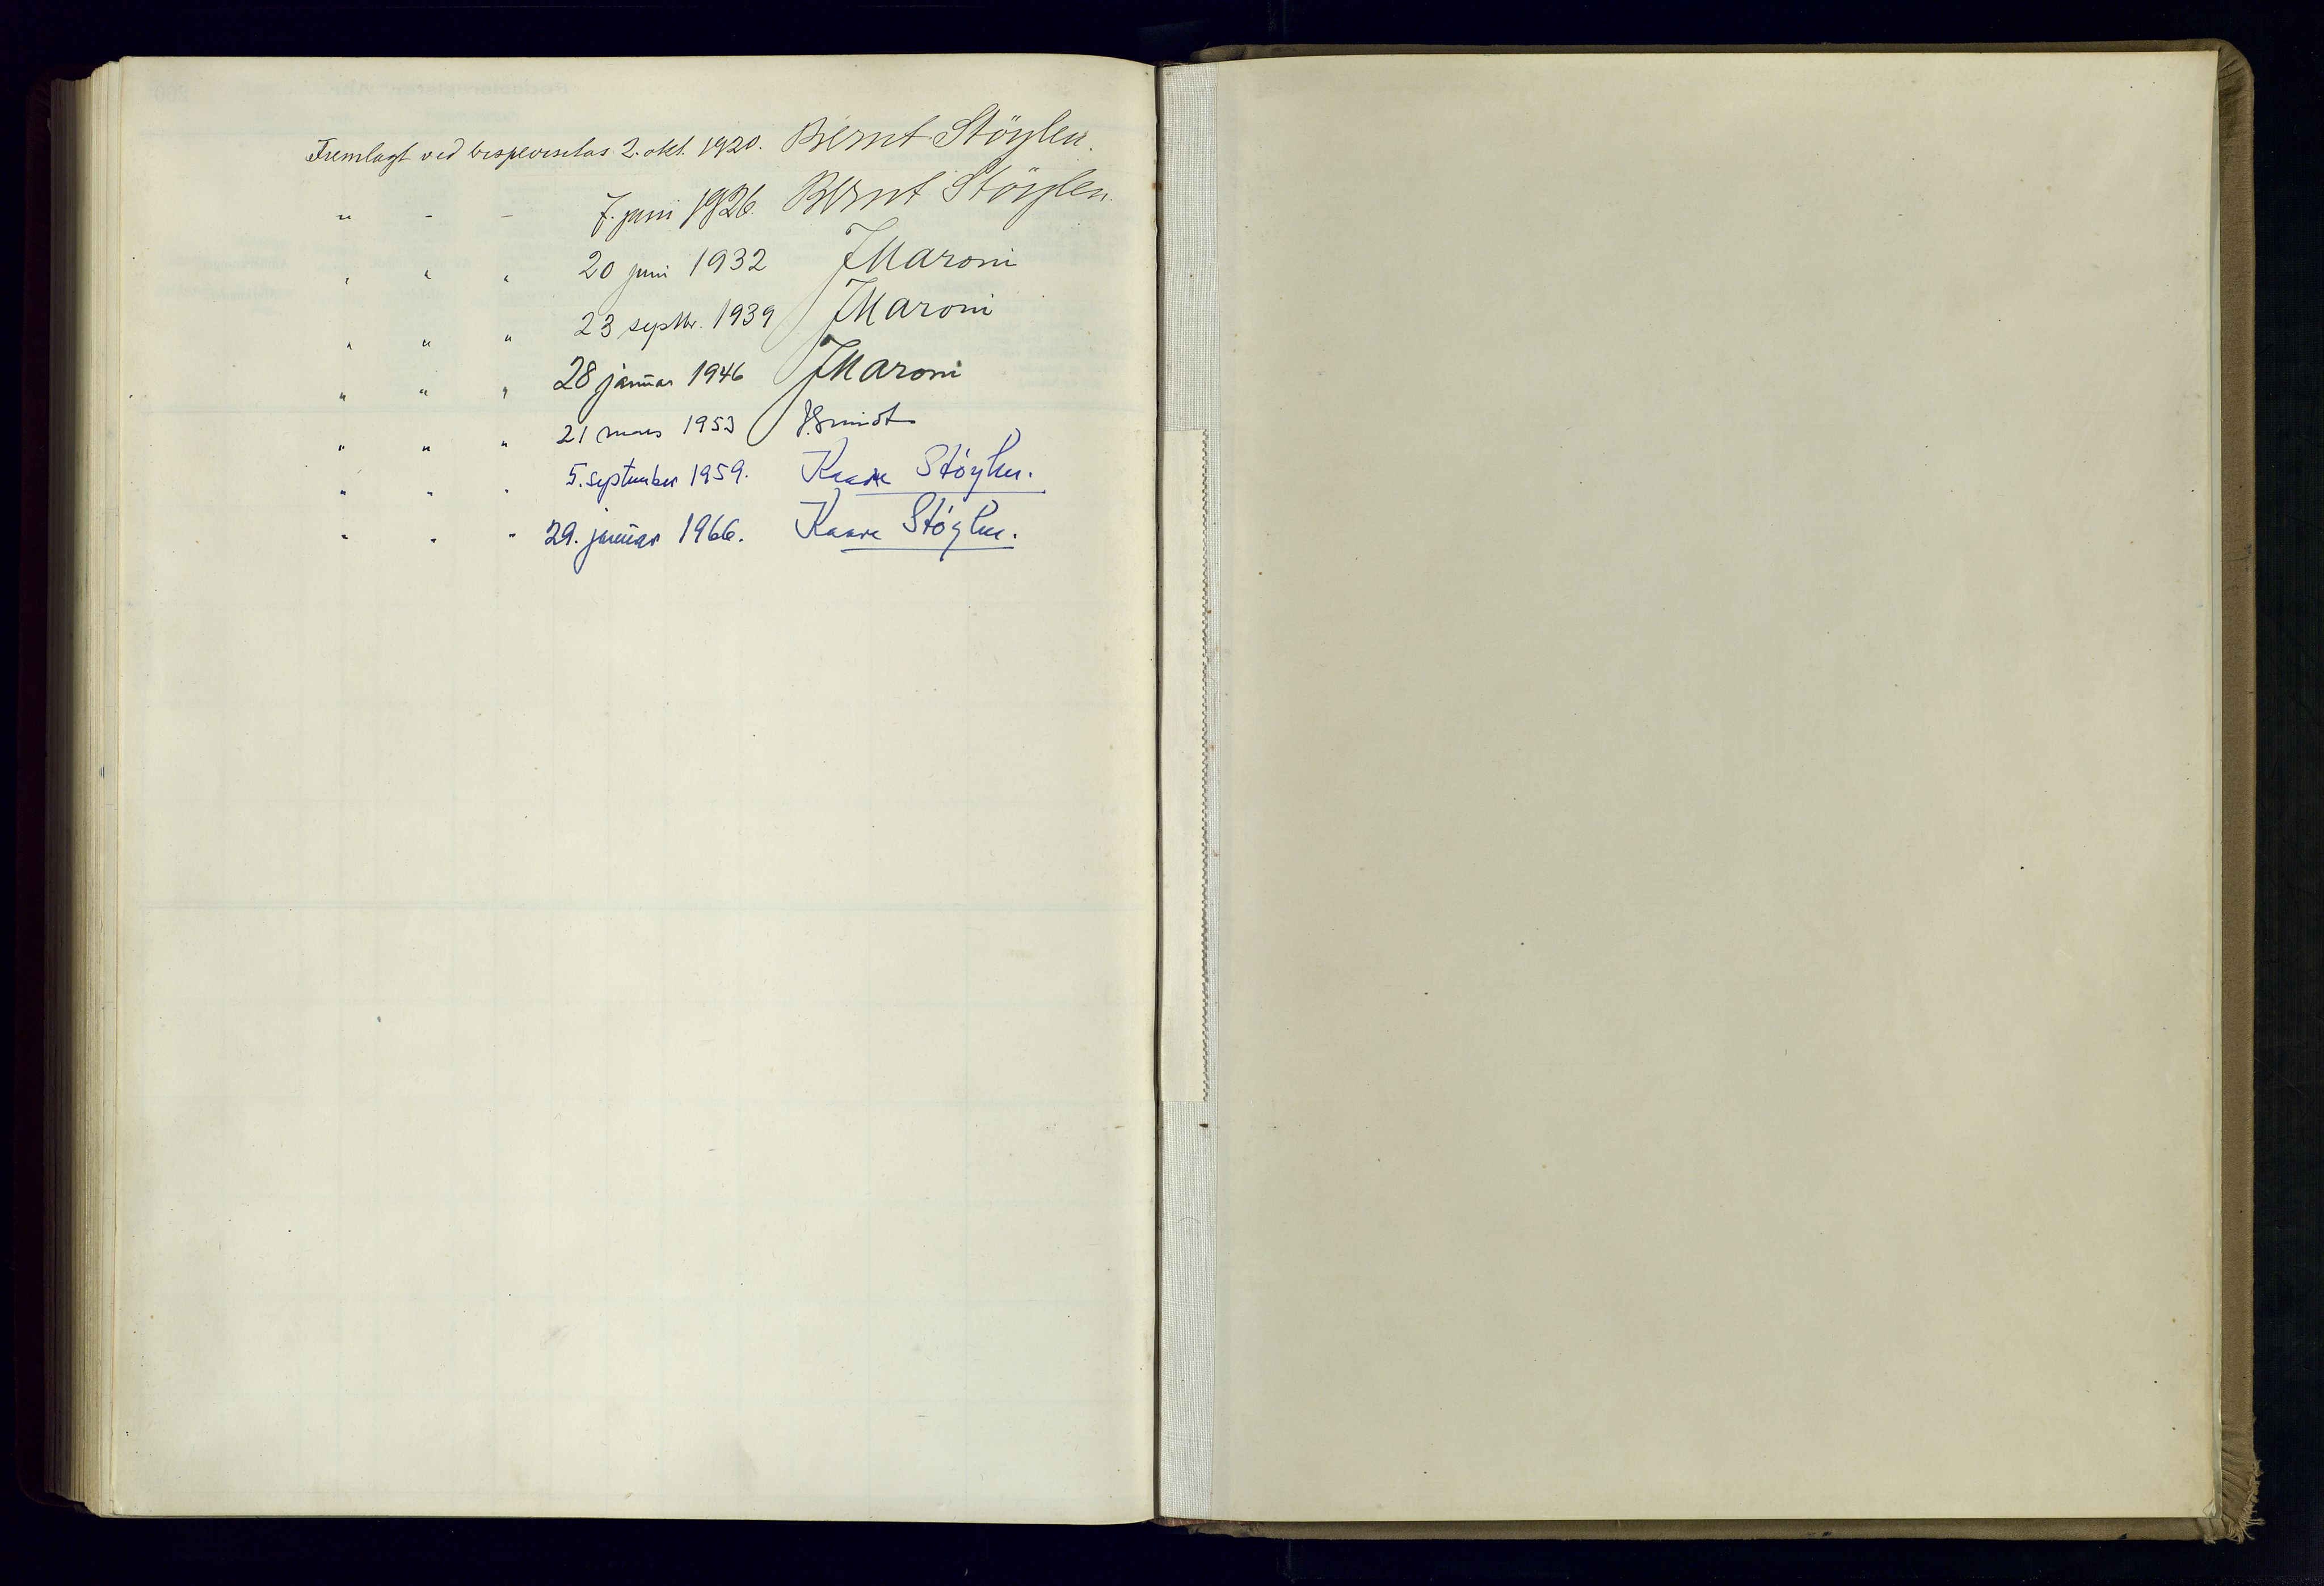 Fremlagt ved bispevisitas 2. okt. 1920. Bernt Støylen.
" - - 7. juni 1926. Bernt Støylen.
" " " 20 juni 1932 J Maroni
" " " 23 septbr. 1939 J Maroni
" " " 28 januar 1946 J Maroni
" " " 21 mars 1953 J. Smidt
" " " 5. september 1959. Kaare Støylen.
" " " 29. januar 1966. Kaare Støylen.